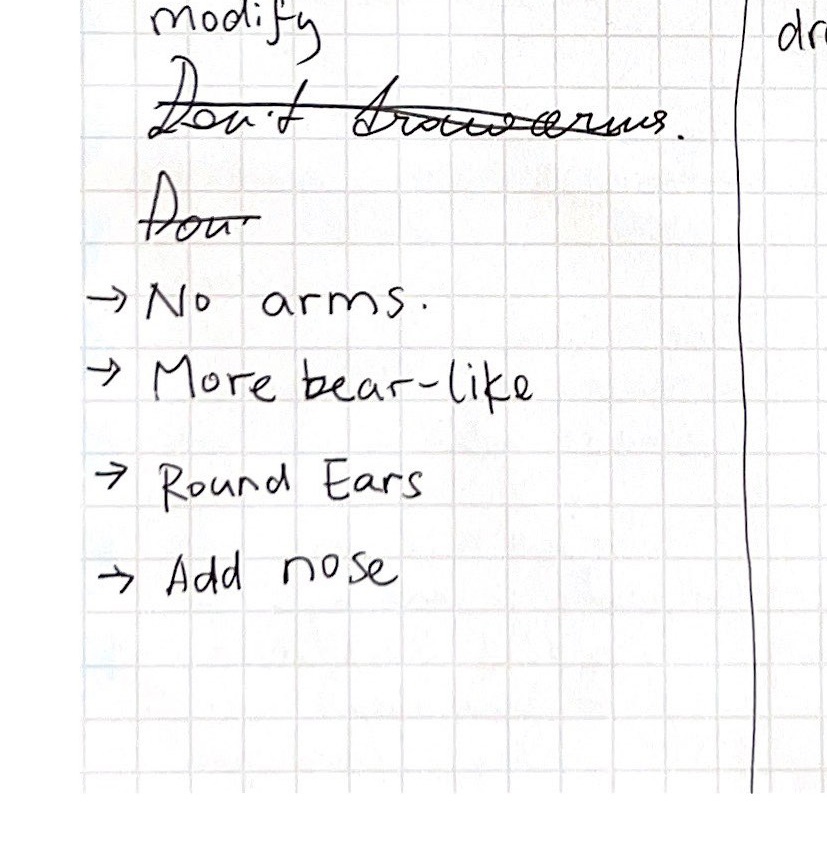 modify
Don't draw arms.
Don
→ No arms.
→ More bear-like
→ Round Ears
→ Add nose